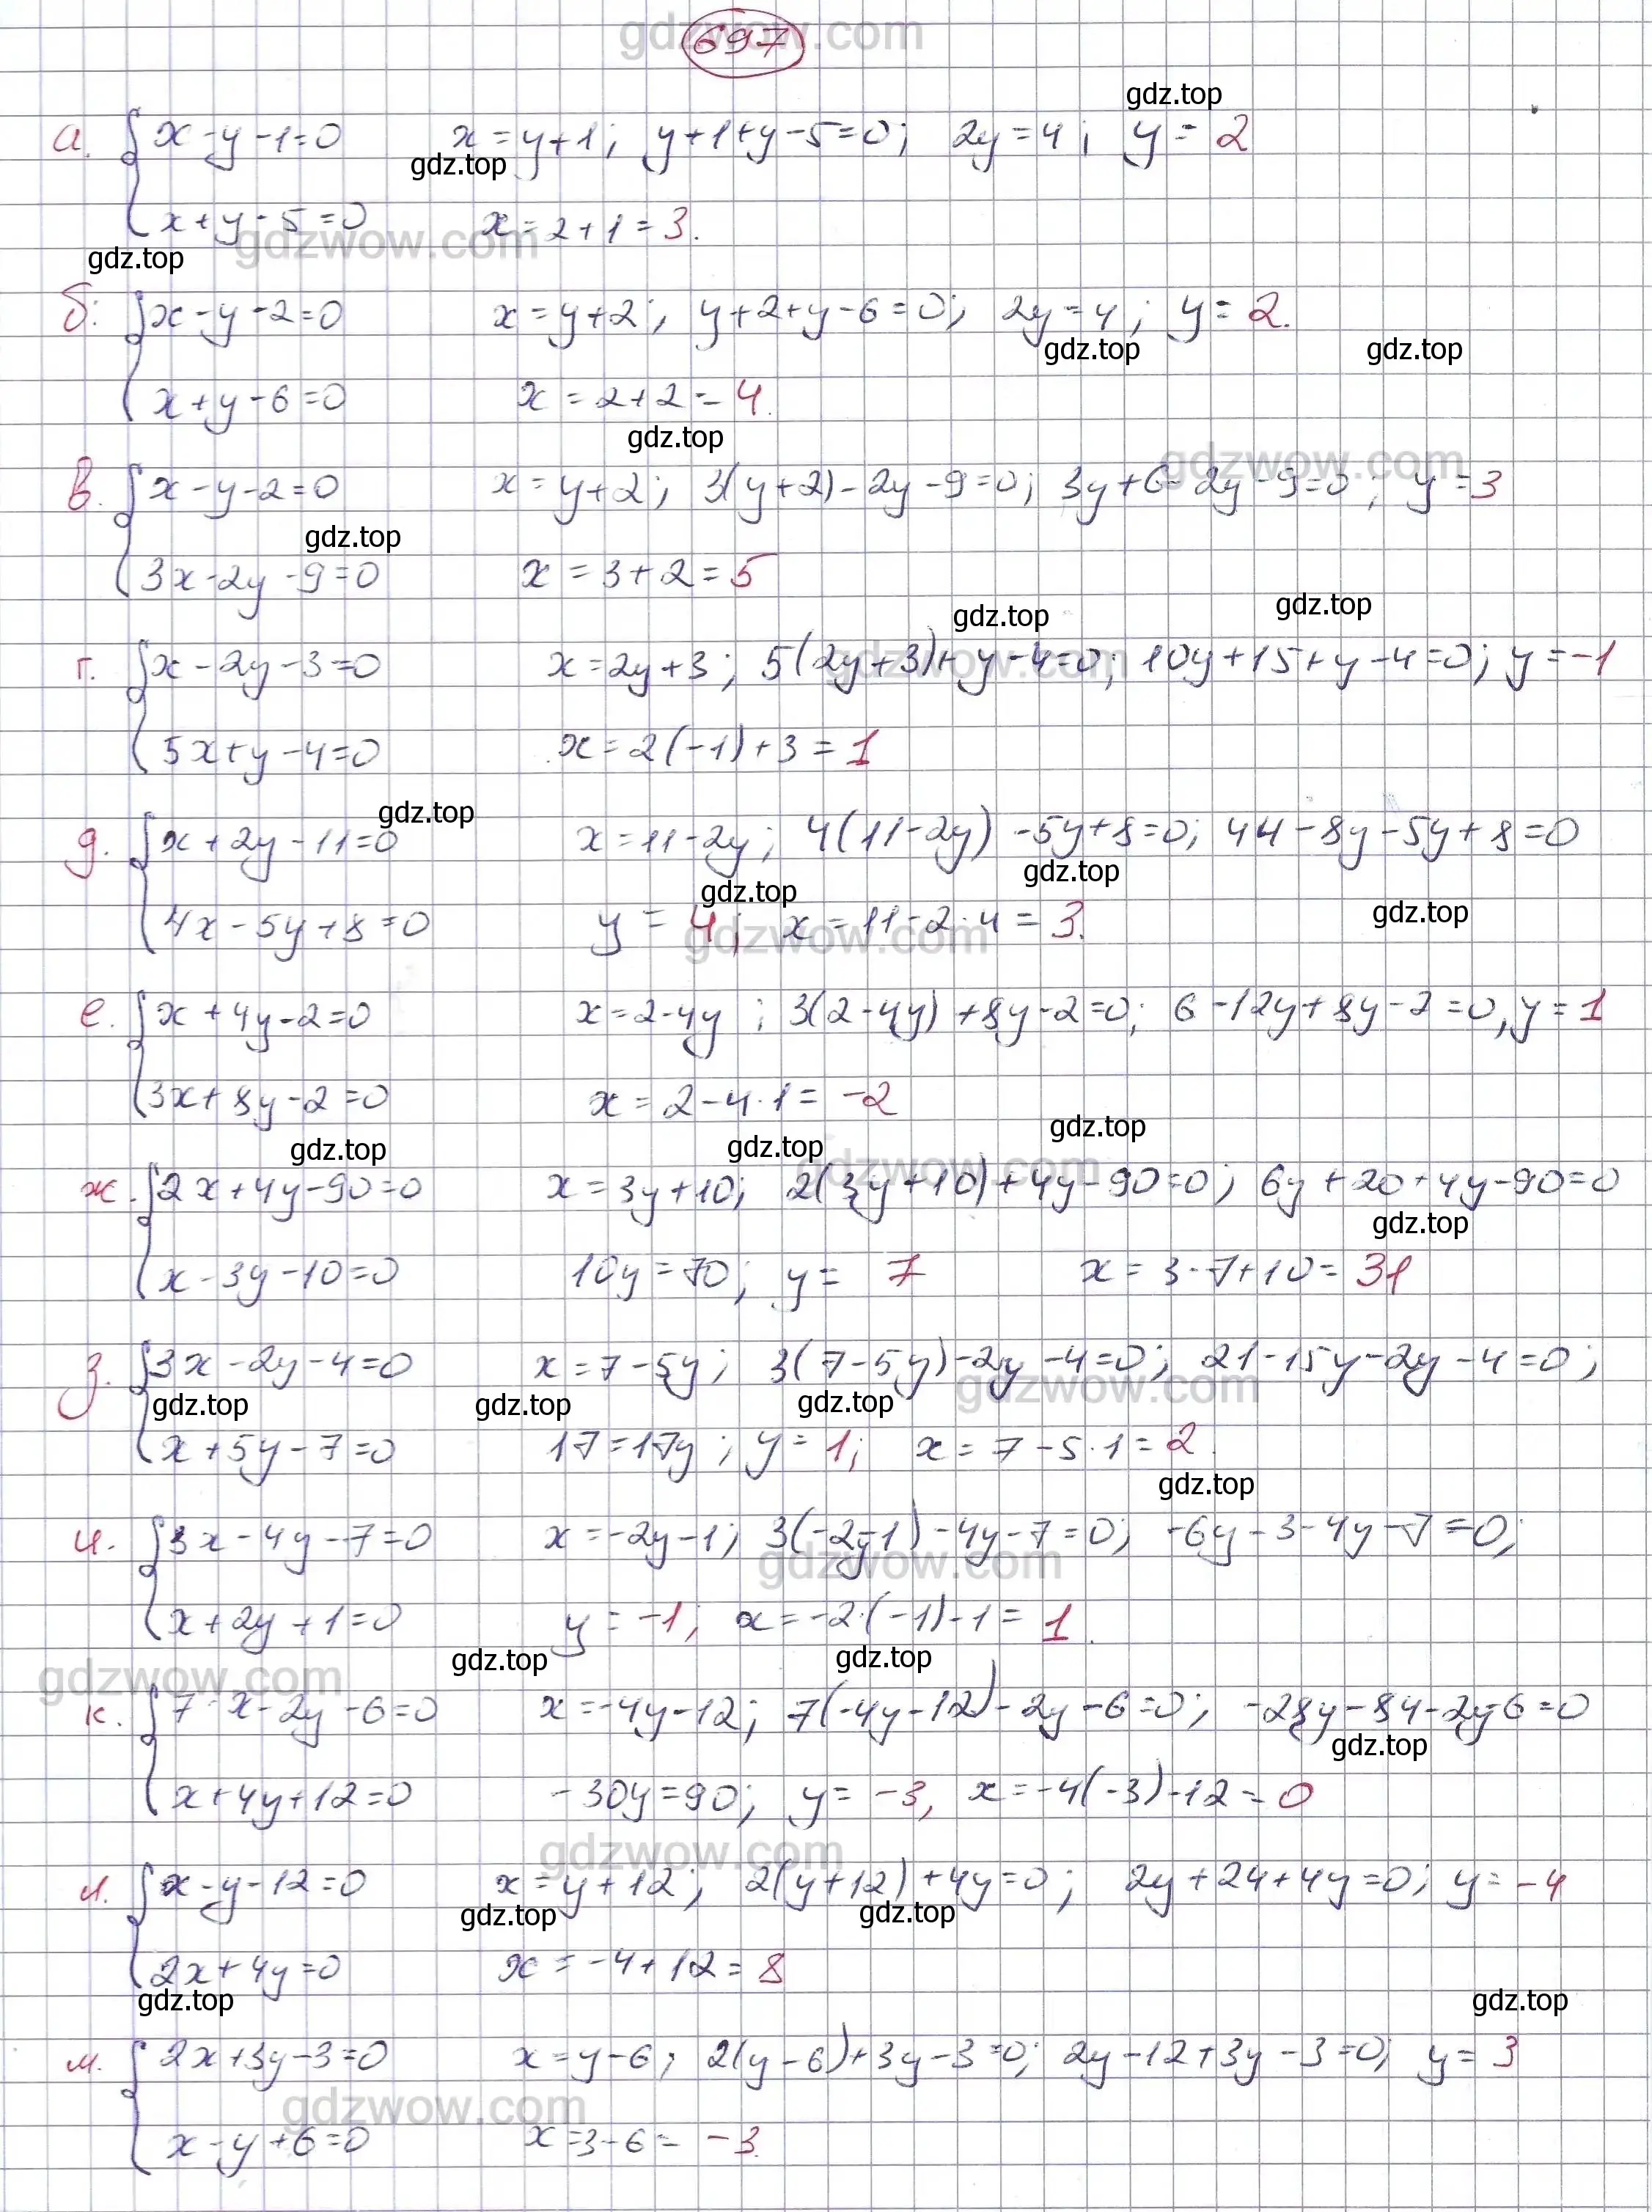 gdzwow.com
697
gdz.top
а. { x - y - 1 = 0 x = y + 1; y + 1 + y - 5 = 0; 2y = 4; y = 2
gdz.top
x + y - 5 = 0 x = 2 + 1 = 3.
gdzwow.com
gdz.top
б. { x - y - 2 = 0 x = y + 2; y + 2 + y - 6 = 0; 2y = 4; y = 2.
gdz.top gdz.top
x + y - 6 = 0 x = 2 + 2 = 4.
gdz.top
gdzwow.com
в. { x - y - 2 = 0 x = y + 2; 3(y + 2) - 2y - 9 = 0; 3y + 6 - 2y - 9 = 0; y = 3
gdz.top
3x - 2y - 9 = 0 x = 3 + 2 = 5
gdz.top gdz.top
gdzwow.com
г. { x - 2y - 3 = 0 x = 2y + 3; 5(2y + 3) + y - 4 = 0; 10y + 15 + y - 4 = 0; y = -1
5x + y - 4 = 0 x = 2(-1) + 3 = 1
gdz.top
д. { x + 2y - 11 = 0 x = 11 - 2y; 4(11 - 2y) - 5y + 8 = 0; 44 - 8y - 5y + 8 = 0
gdz.top gdz.top gdz.top
4x - 5y + 8 = 0 y = 4; x = 11 - 2 · 4 = 3.
gdzwow.com
е. { x + 4y - 2 = 0 x = 2 - 4y; 3(2 - 4y) + 8y - 2 = 0; 6 - 12y + 8y - 2 = 0, y = 1
3x + 8y - 2 = 0 x = 2 - 4 · 1 = -2
gdz.top gdz.top gdz.top
gdzwow.com
ж. { 2x + 4y - 90 = 0 x = 3y + 10; 2(3y + 10) + 4y - 90 = 0; 6y + 20 + 4y - 90 = 0
gdz.top
x - 3y - 10 = 0 10y = 70; y = 7 x = 3 · 7 + 10 = 31
з. { 3x - 2y - 4 = 0 x = 7 - 5y; 3(7 - 5y) - 2y - 4 = 0; 21 - 15y - 2y - 4 = 0;
gdzwow.com
gdz.top gdz.top gdz.top
x + 5y - 7 = 0 17 = 17y; y = 1; x = 7 - 5 · 1 = 2.
gdz.top
и. { 3x - 4y - 7 = 0 x = -2y - 1; 3(-2y - 1) - 4y - 7 = 0; -6y - 3 - 4y - 7 = 0;
gdzwow.com
x + 2y + 1 = 0 y = -1; x = -2 · (-1) - 1 = 1.
gdz.top gdz.top
gdzwow.com
к. { 7 · x - 2y - 6 = 0 x = -4y - 12; 7(-4y - 12) - 2y - 6 = 0; -28y - 84 - 2y - 6 = 0
gdz.top
x + 4y + 12 = 0 -30y = 90; y = -3, x = -4(-3) - 12 = 0
gdzwow.com
л. { x - y - 12 = 0 x = y + 12; 2(y + 12) + 4y = 0; 2y + 24 + 4y = 0; y = -4
gdz.top gdz.top
2x + 4y = 0 x = -4 + 12 = 8
gdz.top gdz.top
м. { 2x + 3y - 3 = 0 x = y - 6; 2(y - 6) + 3y - 3 = 0; 2y - 12 + 3y - 3 = 0; y = 3
gdzwow.com
x - y + 6 = 0 x = 3 - 6 = -3.